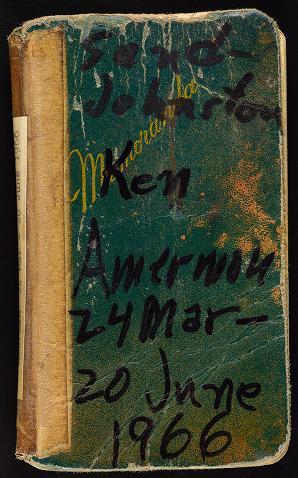 Sand-
Johnston
Memoranda
Ken
Amermon
24 Mar-
20 June
1966